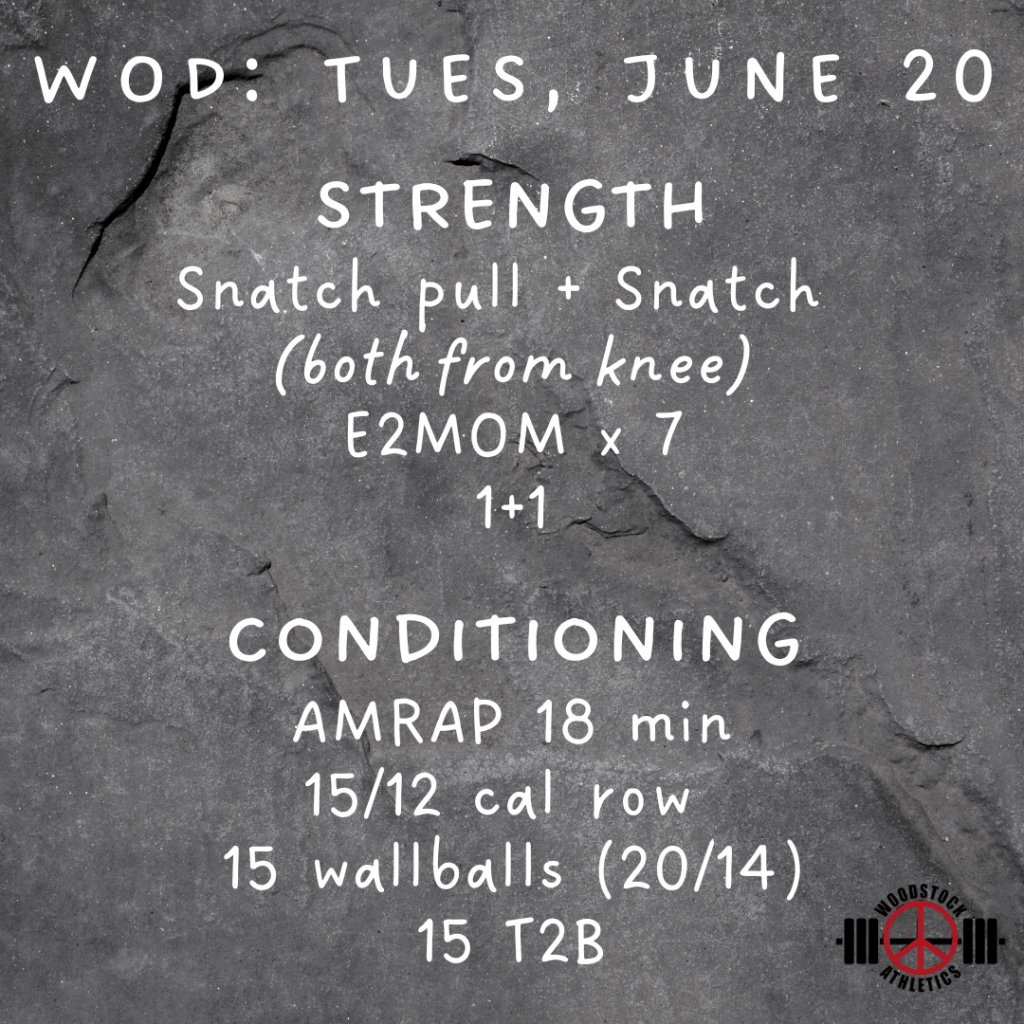 WOD: TUES, JUNE 20
STRENGTH
Snatch pull + Snatch
(both from knee)
E2MOM x 7
1+1
CONDITIONING
AMRAP 18 min
15/12 cal row
15 wallballs (20/14)
15 T2B
WOODSTOCK
ATHLETICS